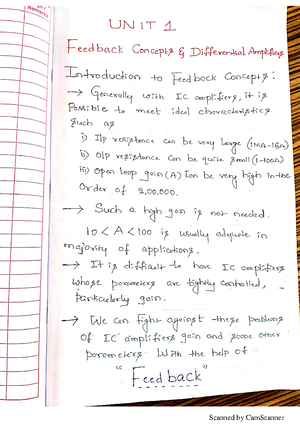 Remarks
UNIT 1
Feedback Concepts & Differential Amplifiers
Introduction to Feedback Concepts :
→ Generally with IC amplifiers, it is
Possible to meet ideal characteristics
such as
i) I/p resistance can be very large (1MΩ-1GΩ)
ii) O/p resistance can be quite small (1-100Ω)
iii) Open loop gain (A) Can be very high in the
Order of 2,00,000.
→ Such a high gain is not needed.
10 < A < 100 is usually adequate in
majority of applications.
→ It is difficult to have IC amplifiers
whose parameters are tightly controlled,
Particularly gain.
→ We can fight against these problems
of IC amplifiers gain and some other
parameters With the help of
"Feedback"
Scanned by CamScanner